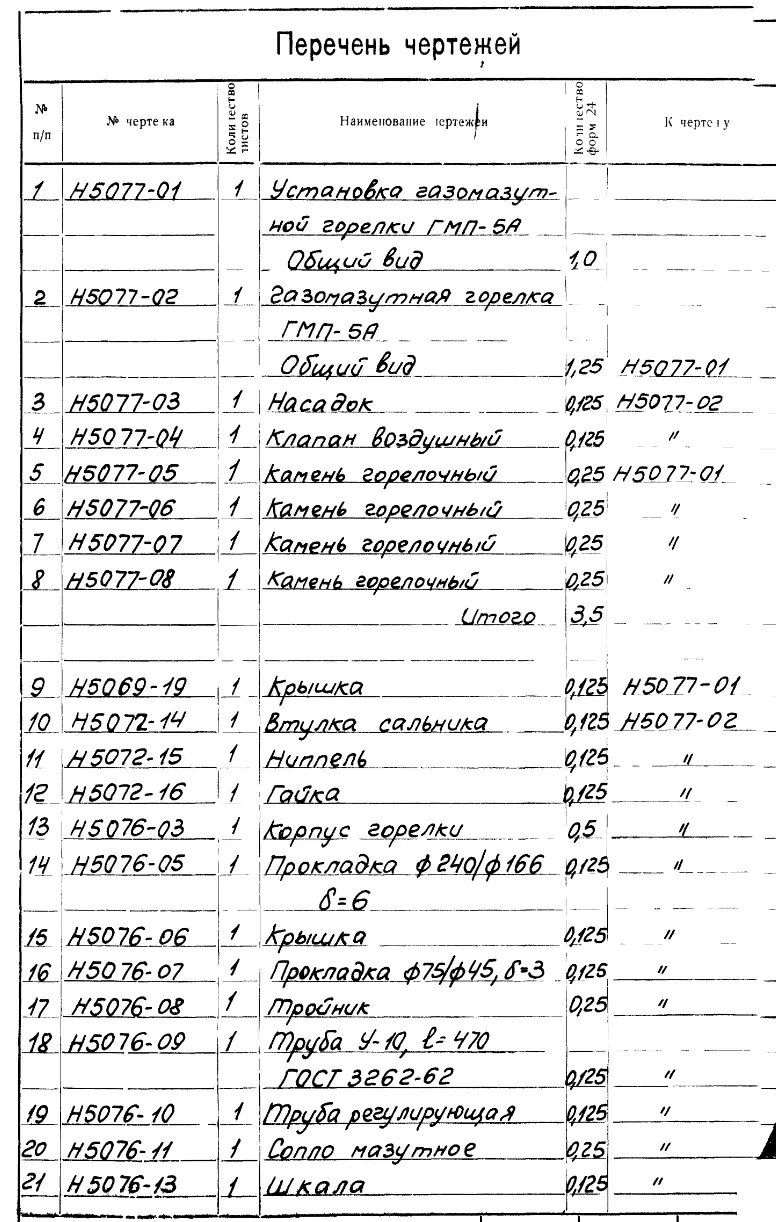 Перечень чертежей
№ п/п № чертежа Количество листов Наименование чертежей Количество форм 24 К чертежу
1 Н5077-01 1 Установка газомазут-
ной горелки ГМП-5А
Общий вид 1,0
2 Н5077-02 1 Газомазутная горелка
ГМП-5А
Общий вид 1,25 Н5077-01
3 Н5077-03 1 Насадок 0,125 Н5077-02
4 Н5077-04 1 Клапан воздушный 0,125 "
5 Н5077-05 1 Камень горелочный 0,25 Н5077-01
6 Н5077-06 1 Камень горелочный 0,25 "
7 Н5077-07 1 Камень горелочный 0,25 "
8 Н5077-08 1 Камень горелочный 0,25 "
Итого 3,5
9 Н5069-19 1 Крышка 0,125 Н5077-01
10 Н5072-14 1 Втулка сальника 0,125 Н5077-02
11 Н5072-15 1 Ниппель 0,125 "
12 Н5072-16 1 Гайка 0,125 "
13 Н5076-03 1 Корпус горелки 0,5 "
14 Н5076-05 1 Прокладка ф240/ф166 0,125 "
δ=6
15 Н5076-06 1 Крышка 0,125 "
16 Н5076-07 1 Прокладка ф75/ф45, δ=3 0,125 "
17 Н5076-08 1 Тройник 0,25 "
18 Н5076-09 1 Труба У-10, ℓ=470
ГОСТ 3262-62 0,125 "
19 Н5076-10 1 Труба регулирующая 0,125 "
20 Н5076-11 1 Сопло мазутное 0,25 "
21 Н5076-13 1 Шкала 0,125 "